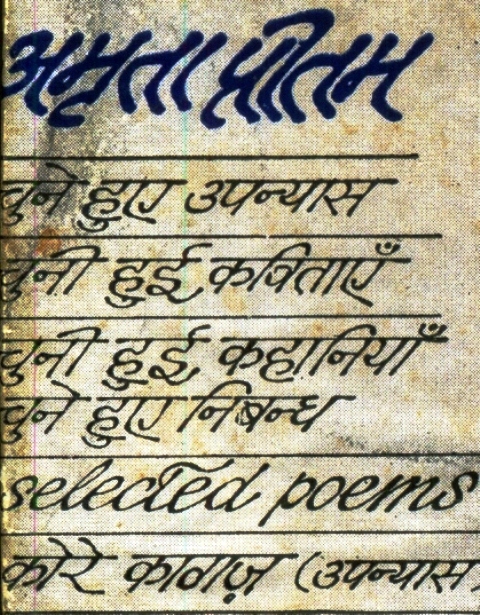 अमृता प्रीतम
चुने हुए उपन्यास
चुनी हुई कविताएँ
चुनी हुई कहानियाँ
चुने हुए निबन्ध
selected poems
कोरे काग़ज़ (उपन्यास)